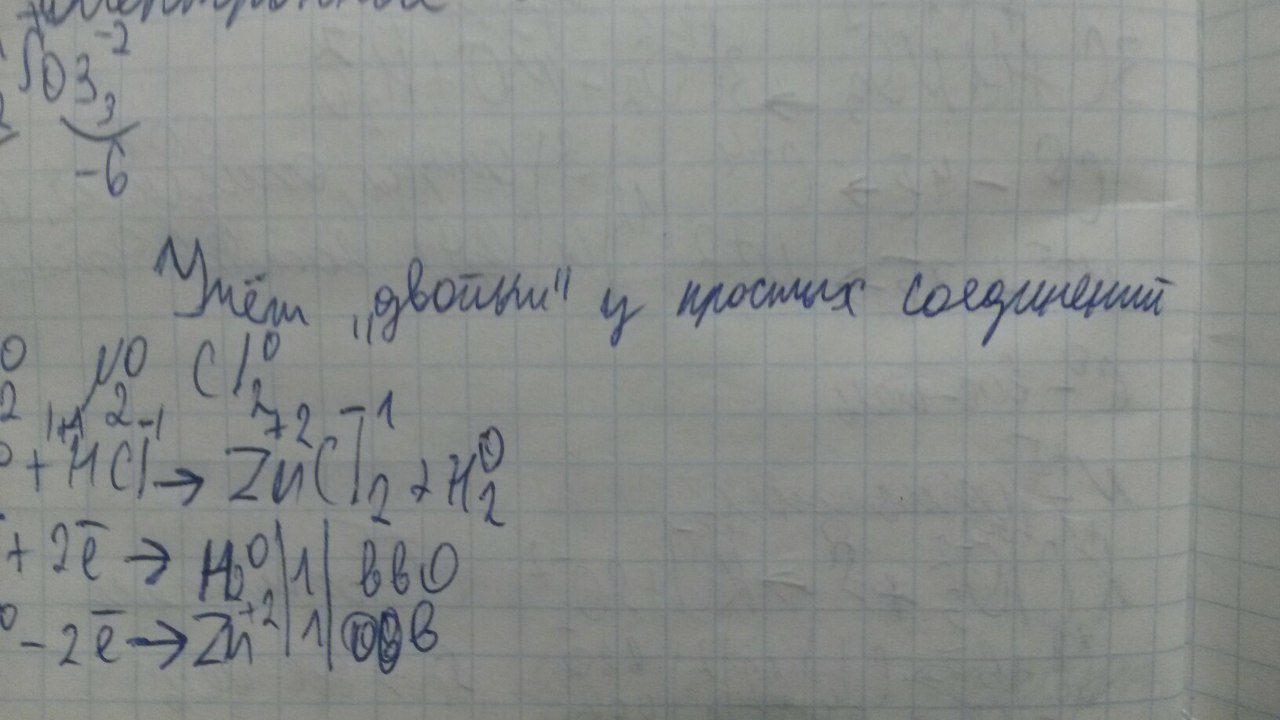 SO3 3 -2
-6
Учёт „двойки" у простых соединений
0 2 N0 2 Cl2 0
0 + +1 HCl -1 → +2 ZnCl2 -1 + H2 0
+ 2ē → H2 0 | 1 | ввО
0 - 2ē → Zn +2 | 1 | в